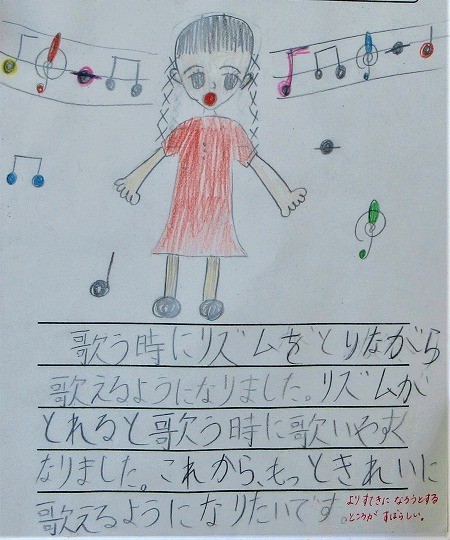 歌う時にリズムをとりながら
歌えるようになりました。リズムが
とれると歌う時に歌いやすく
なりました。これから、もっときれいに
歌えるようになりたいです。
よりすてきになろうとする
ところがすばらしい。